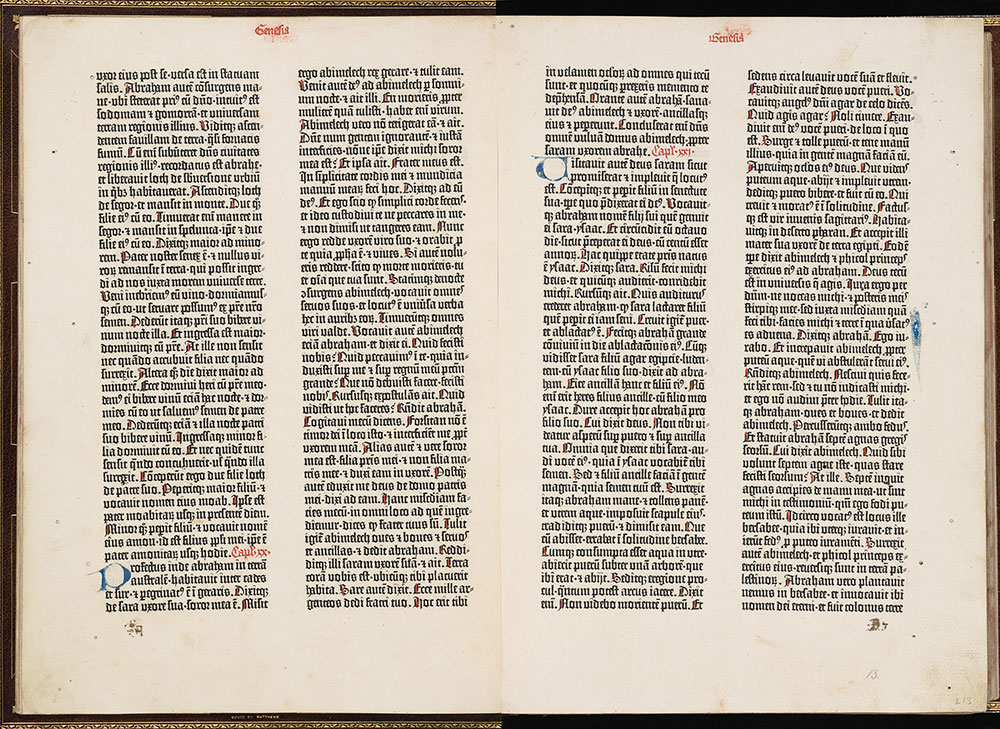 Genesis
uxor eius post se·versa est in statuam
salis. Abraham autē cōsurgens ma-
ne·ubi steterat prius cū dño·intuitꝰ est
sodomam ⁊ gomorrā·et universam
terram regionis illius. Viditqꝫ ascen-
dentem favillam de terra·qͣsi fornacis
fumū. Cū em̄ subverteret dñs civitates
regionis illiꝰ·recordatus est abrahe·
et liberavit loth de subversione urbiū
in qͥbꝫ habitaverat. Ascenditqꝫ loth
de segor·et mansit in monte. Due qꝫ
filie eiꝰ cū eo. Timuerat em̄ manere in
segor·⁊ mansit in spelunca·ip̄e ⁊ due
filie eiꝰ cū eo. Dixitqꝫ maior ad mino-
rem. Pater noster senex ē·⁊ nullus vi-
roꝝ remansit ī terra·qui possit ingre-
di ad nos iuxta morem universe terre.
Veni inebriemꝰ eū vino·dormiamusꝫ
qꝫ cū eo·ut servare possimꝰ ex pr̄e nr̄o
semen. Dederūt itaqꝫ pr̄i suo bibere vi-
num nocte illa. Et ingressa est maior·
dormivitqꝫ cū pr̄e. At ille non sensit
nec quādo accubuit filia nec quādo
surrexit. Altera qꝫ die dixit maior ad
minorē. Ecce dormivi heri cū pr̄e meo·
demꝰ ei bibere vinū eciā hac nocte·⁊ dor-
mies cū eo·ut salvemꝰ semen de patre
meo. Dederūtqꝫ eciā ⁊ illa nocte patri
suo bibere vinū. Ingressaqꝫ minor fi-
lia dormivit cū eo. Et nec quidē tunc
sensit quādo concubuerit·vl' qn̄do illa
surrexit. Cōceperūt ergo due filie loth
de patre suo. Peperitqꝫ maior filiū·⁊
vocavit nomen eius moab. Ipse est
pater moabitaꝝ usqꝫ in presentē diem.
Minor qꝫ peperit filiū·⁊ vocavit nomē
eius amon·id est filius pp̄li mei·ip̄e ē
pater amonitaꝝ usqꝫ hodie. Capl'. xx.
Profectus inde abraham in terrā
australē·habitavit inter cades
et sur·⁊ peregrinatꝰ ē ī geraris. Dixitqꝫ
de sara uxore sua·soror mea ē. Misit
ergo abimelech rex gerare·⁊ tulit eam.
Venit autē deꝰ ad abimelech p̲ somni-
um nocte·⁊ ait illi. En morieris ꝓpter
mulierē quā tulisti·habet em̄ virum.
Abimelech vero nō tetigerat eā·⁊ ait.
Dñe num gentem ignorantē ⁊ iustā
interficies·nōne ip̄e dixit michi soror
mea est·⁊ ip̄a ait. Frater meus est.
In simplicitate cordis mei ⁊ mundicia
manuū meaꝝ feci hoc. Dixitqꝫ ad eū
deꝰ. Et ego scio qꝫ simplici corde feceris·
et ideo custodivi te ne peccares in me·
⁊ non dimisi ut tangeres eam. Nunc
ergo redde uxorē viro suo·⁊ orabit p̲
te quia ꝓpha ē·⁊ vives. Si autē nolu-
eris reddere·scito qꝫ morte morieris·tu
et oīa que tua sunt. Statimqꝫ de nocte
cōsurgens abimelech·vocavit omnes
servos suos·et locutꝰ ē universa verba
hec in auribꝫ eoꝝ. Timueruntqꝫ omnes
viri valde. Vocavit autē abimelech
eciā abraham·et dixit ei. Quid fecisti
nobis·Quid peccavimꝰ ī te·quia in-
duxisti sup̲ me ⁊ sup̲ regnū meū pcc̄m
grande·Que nō debuisti facere·fecisti
nobis. Rursusqꝫ expostulās ait. Quid
vidisti ut hoc faceres·Rn̄dit abrahā.
Cogitavi mecū dicens. Forsitan nō ē
timor dei ī loco isto·⁊ interficiēt me ꝓpt̄
uxorem meā. Alias autē ⁊ vere soror
mea est·filia pr̄is mei·⁊ non filia ma-
tris mee·⁊ duxi eam in uxorē. Postqͣ
autē eduxit me deus de domo patris
mei·dixi ad eam. Hanc mīsdiam fa-
cies mecū·in omni loco ad quē ingre-
diemur·dices qꝫ frater tuus sū. Tulit
igit̄ abimelech oves ⁊ boves·⁊ servos
et ancillas·⁊ dedit abraham. Reddi-
ditqꝫ illi saram uxorē suā·⁊ ait. Terra
corā vobis est·ubicūqꝫ tibi placuerit
habita. Sare autē dixit. Ecce mille ar-
genteos dedi fratri tuo. Hoc erit tibi
Genesis
in velamen oculoꝝ ad omnes qui tecū
sunt·et quocūqꝫ ꝑrexeris·memento te
dep̄hensā. Orante autē abrahā·sana-
vit deꝰ abimelech ⁊ uxorē·ancillasqꝫ
eius ⁊ pepererunt. Concluserat em̄ dñs
omnē vulvā domus abimelech·ꝓpter
saram uxorem abrahe. Capl'. xxi.
Visitavit autē deus saram sicut
promiserat·⁊ implevit qͥ locutꝰ
est. Cōcepitqꝫ et peperit filiū in senectute
sua·tꝑe quo p̄dixerat ei deꝰ. Vocavit-
qꝫ abraham nomē filij sui quē genuit
ei sara·ysaac. Et circūcidit eū octavo
die·sicut p̄ceperat ei deus·cū centū esset
annoꝝ. Hac quippe etate pr̄is natus
ē ysaac. Dixitqꝫ sara. Risū fecit michi
deus·et quicūqꝫ audierit·corridebit
michi. Rursūqꝫ ait. Quis auditurꝰ
crederet abraham·qꝫ sara lactaret filiū
quē peꝑit ei iam seni. Crevit igit̄ puer
et ablactatꝰ ē. Fecitqꝫ abrahā grande
cōviviū in die ablactacōnis eiꝰ. Cūqꝫ
vidisset sara filiū agar egipcie·luden-
tem·cū ysaac filio suo·dixit ad abra-
ham. Eice ancillā hanc et filiū eiꝰ. Nō
em̄ erit heres filius ancille·cū filio meo
ysaac. Dure accepit hoc abrahā pro
filio suo. Cui dixit deus. Non tibi vi-
deatur asperū sup̲ puero ⁊ sup̲ ancilla
tua. Omnia que dixerit tibi sara·au-
di vocē eiꝰ·quia ī ysaac vocabit̄ tibi
semen. Sed ⁊ filiū ancille faciā ī gentē
magnā·quia semen tuū est. Surrexit
itaqꝫ abraham mane·⁊ tollens panē
et utrem aque·imposuit scapule eiꝰ·
tradiditqꝫ puerū·⁊ dimisit eam. Que
cū abisset·errabat ī solitudine bersabee.
Cumqꝫ consumpta esset aqua in utre·
abiecit puerū subter unā arborē·que
ibi erat·⁊ abijt. Seditqꝫ e regione pro-
cul·qͣntum potest arcus iacere. Dixit
em̄. Non videbo morientē puerū. Et
sedens circa levavit vocē suā et flevit.
Exaudivit autē deus vocē pueri. Vo-
cavitqꝫ angelꝰ dn̄i agar de celo dicēs.
Quid agis agar·Noli timere. Exau-
divit em̄ deꝰ vocē pueri·de loco ī quo
est. Surge ⁊ tolle puerū·et tene manū
illius·quia in gentē magnā faciā eū.
Aperuitqꝫ oculos eiꝰ deus. Que vidēs
puteum aque·abijt ⁊ implevit utrem·
deditqꝫ puero bibere·et fuit cū eo. Qui
crevit ⁊ moratꝰ ē ī solitudine. Factus-
qꝫ est vir iuvenis sagittariꝰ. Habita-
vitqꝫ in deserto pharan. Et accepit illi
mater sua uxorē de terra egipti. Eodē
tꝑe dixit abimelech·⁊ phicol princeps
exercitus eiꝰ ad abraham. Deus tecū
est in universis qͥ agis. Iura ergo per
deum·ne noceas michi·⁊ posteris meis
stirpiqꝫ mee·sed iuxta mīsdiam quā
feci tibi·facies michi ⁊ terre ī qua ōsatꝰ
es advena. Dixitqꝫ abrahā. Ego iu-
rabo. Et increpavit abimelech ꝓpter
puteū aque·quē vi abstulerāt servi eiꝰ.
Rn̄ditqꝫ abimelech. Nescivi quis fece-
rit hāc rem·sed ⁊ tu nō indicasti michi·
et ego nō audivi p̄ter hodie. Tulit ita-
qꝫ abraham·oves et boves·et dedit
abimelech. Percusserūtqꝫ ambo fedus.
Et statuit abrahā septē agnas gregis
seorsū. Cui dixit abimelech. Quid sibi
volunt septem agne iste·quas stare
fecisti seorsum·At ille. Septē inquit
agnas accipies de manu mea·ut sint
michi in testimoniū·quoniā ego fodi pu-
teum istū. Idcirco vocatꝰ est locus ille
bersabee·quia ibi uterqꝫ iuravit·et in-
ierūt fedꝰ p̲ puteo iuramēti. Surrexit
autē abimelech·et phicol princeps ex-
ercitus eius·reversiqꝫ sunt in terrā pa-
lestinoꝝ. Abraham vero plantavit
nemus in bersabee·et invocavit ibi
nomen dei eterni·et fuit colonus terre
13